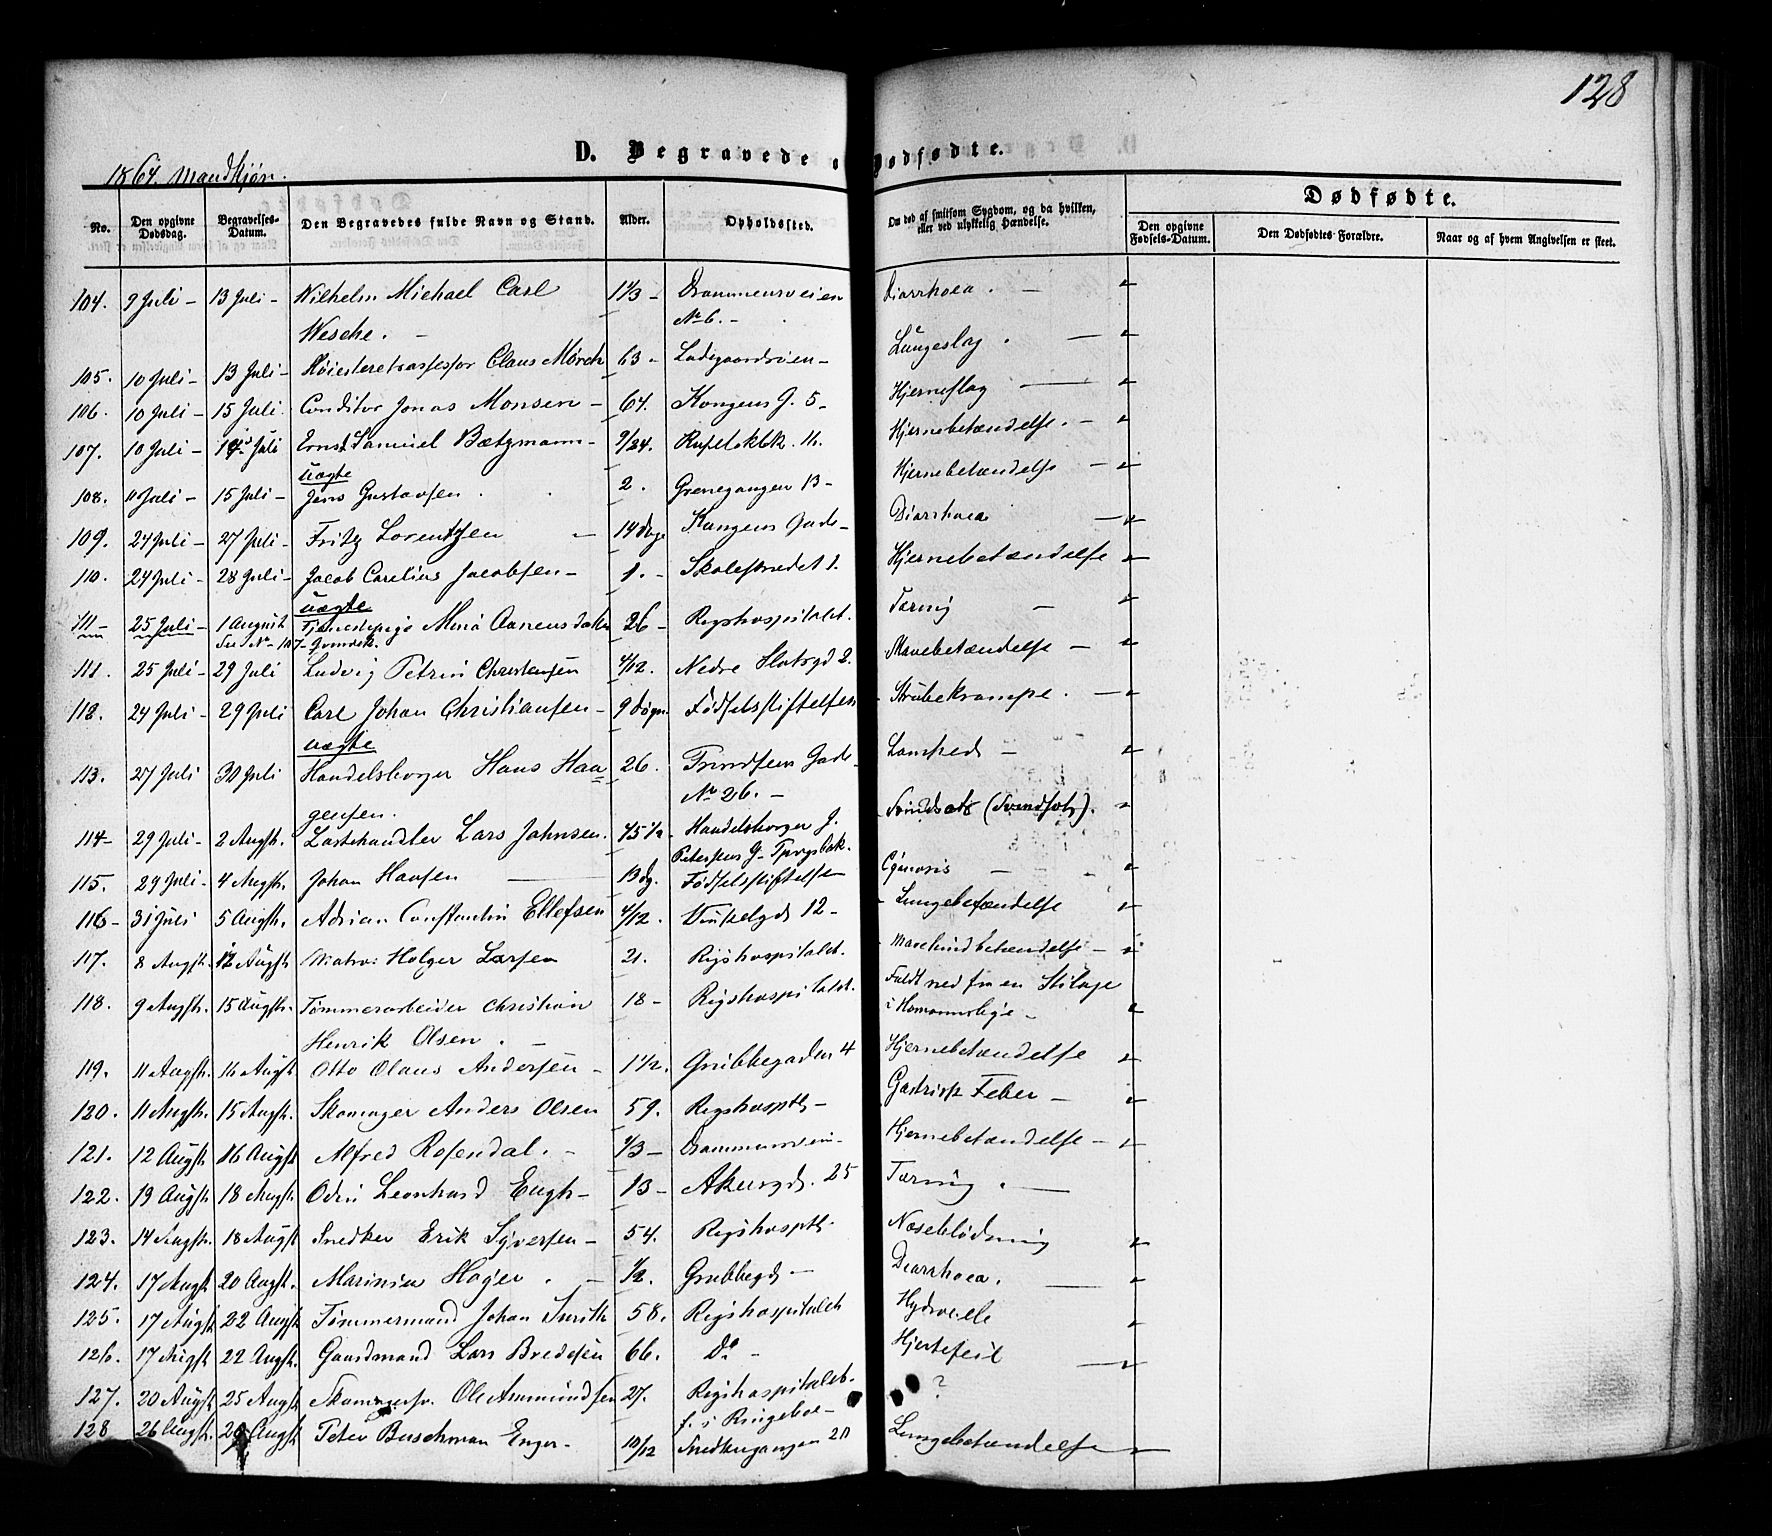 128
D. Begravede o
Dødfødte.
1864. Mandkjøn.
No. Den opgivne Dødsdag. Begravelses-Datum. Den Begravedes fulde Navn og Stand. Alder. Opholdssted. Om død af smitsom Sygdom, og da hvilken, eller ved ulykkelig Hændelse. Dødfødte.
Den opgivne Fødsels-Datum. Den Dødfødtes Forældre. Naar og af hvem Angivelsen er skeet.
104. 9 Juli - 13 Juli - Wilhelm Michael Carl 1 1/3 - Drammensveien Diarrhoea. -
Wesche. - No 6. -
105. 10 Juli - 13 Juli - Høiesteretsassessor Claus Mørch 63 - Ladegaardsøen - Lungeslag. -
106. 10 Juli - 15 Juli. Conditor Jonas Monsen - 64. Kongens G. 5 - Hjerneslag -
107. 10 Juli - Juli Ernst Samuel Bætzmann - 9/24. 16. Hjernebetændelse. -
uægte
108. 11 Juli - 15 Juli - Jens Gustavsen. 2. Grønnegangen 13 - Hjernebetændelse -
109. 24 Juli - 27 Juli - Fritz Lorentzen - 14 dage Kongens Gade - Diarrhoea -
110. 24 Juli - 28 Juli - Jacob Carelius Jacobsen - 1. - Skolestrædet 1. Hjernebetændelse
uægte
111 - 25 Juli - 1 August Tjenestepige 26 - Rigshospitalet. Tæring -
See No 107 - Qvindek.
111. 25 Juli - 29 Juli Ludvig Petrin Christensen 4/12. Nedre Slotsgd 2. Mavebetændelse -
112. 24 Juli - 29 Juli Carl Johan Christiansen - 9 døgn. Fødselsstiftelsen - Strubekrampe. -
uægte
113. 27 Juli 30 Juli Handelsborger Hans Haa 26. Gade - -
gensen. No 26. -
114 - 29 Juli - 2 Augst. Lars Johnsen. 45 1/2 - Handelsborger J.
Petersens G -
115. 29 Juli - 4 Augst. Johan Hansen - 13 dg. Fødselsstiftelsen Cyanosis -
116 - 31 Juli 5 Augst. Adrian Constantin Ellefsen 4/12. 12 - - Lungebetændelse
117. 8 Augst. 12 Augst Matros Holger Larsen 21. Rigshospitalet. -
118. 9 Augst. 15 Augst. Tømmerarbeider Christian 18 - Rigshospitalet. Faldt ned fra en Stilage
Henrik Olsen. - i
119. 11 Augst. 16 Augst Otto Olaus Andersen - 1 1/2. Grubbegaden 4 Hjernebetændelse
120. 11 Augst. 15 Augst. Skomager Anders Olsen 59. Rigshospth - Gastrisk Feber -
121. 12 Augst 16 Augst Alfred Rosendal. - 1/3 - Drammensvei - Hjernebetændelse -
122. 19 Augst 18 Augst. Odin Leonhard Engh - 13 - Akersgd. 25 Tæring. -
123. 14 Augst. 18 Augst Snedker Erik Syversen - 54. Rigshospth. Næseblødning
124. 17 Augst 20 Augst. Marinius Høyer. - 1/2. Grubbegd. - Diarrhoea. -
125. 17 Augst 22 Augst Tømmermand Johan Smith 58. Rigshospitalet Hydrocele
126. 17 Augst 22 Augst. Gaardmand Lars Bredesen 66. Do - Hjertefeil -
127. 20 Augst 25 Augst Skomagersv. Ole Ammundsen 27. Rigshospitalet. ?
f. i Ringeboe -
128 26 Augst. Augst Peter Buschman Enger - 10/12 Snedkergangen Lungebetændelse